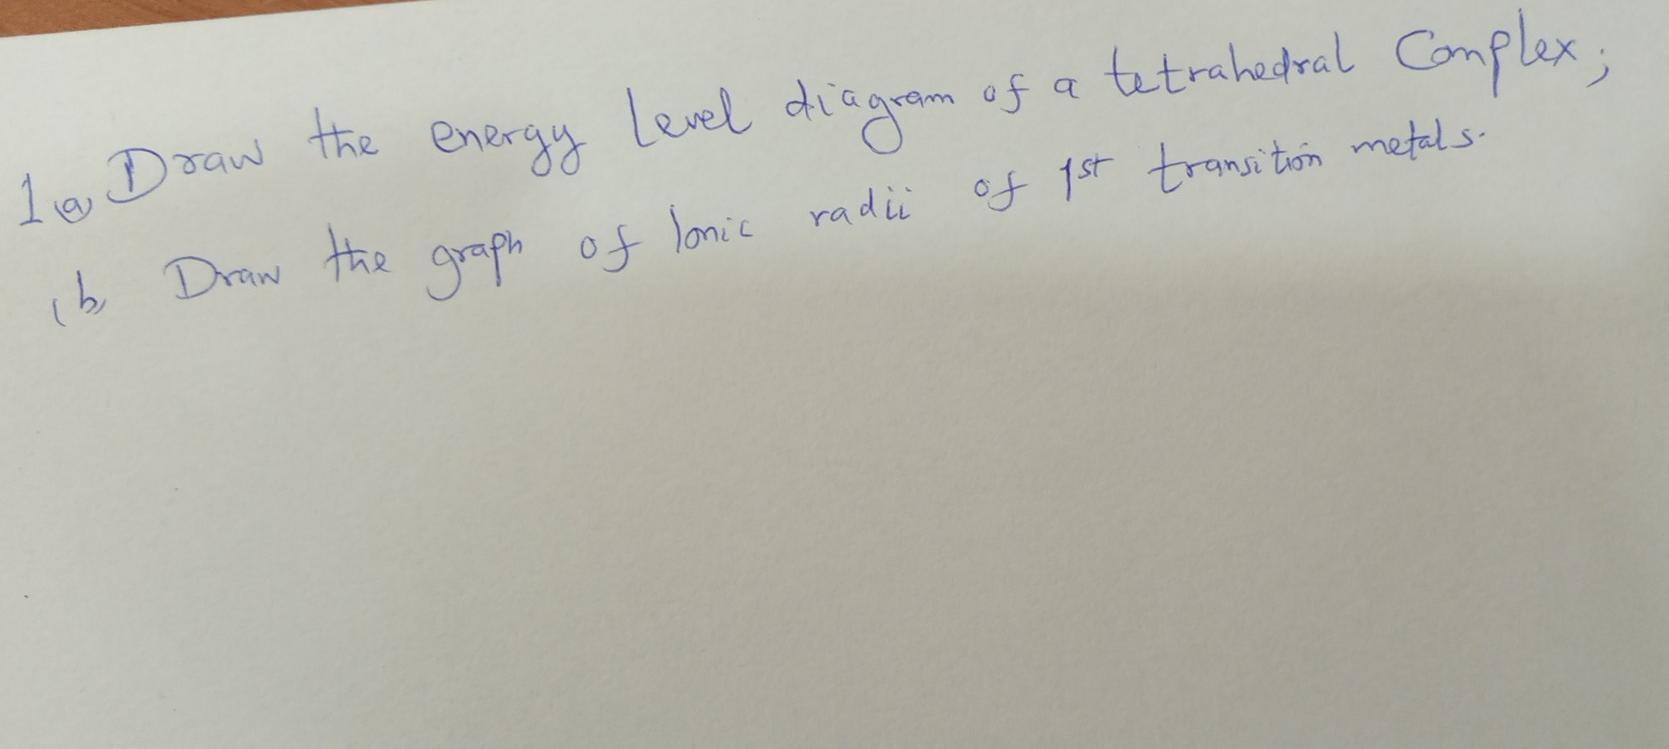 1 (a) Draw the energy level diagram of a tetrahedral Complex;
(b) Draw the graph of Ionic radii of 1st transition metals.